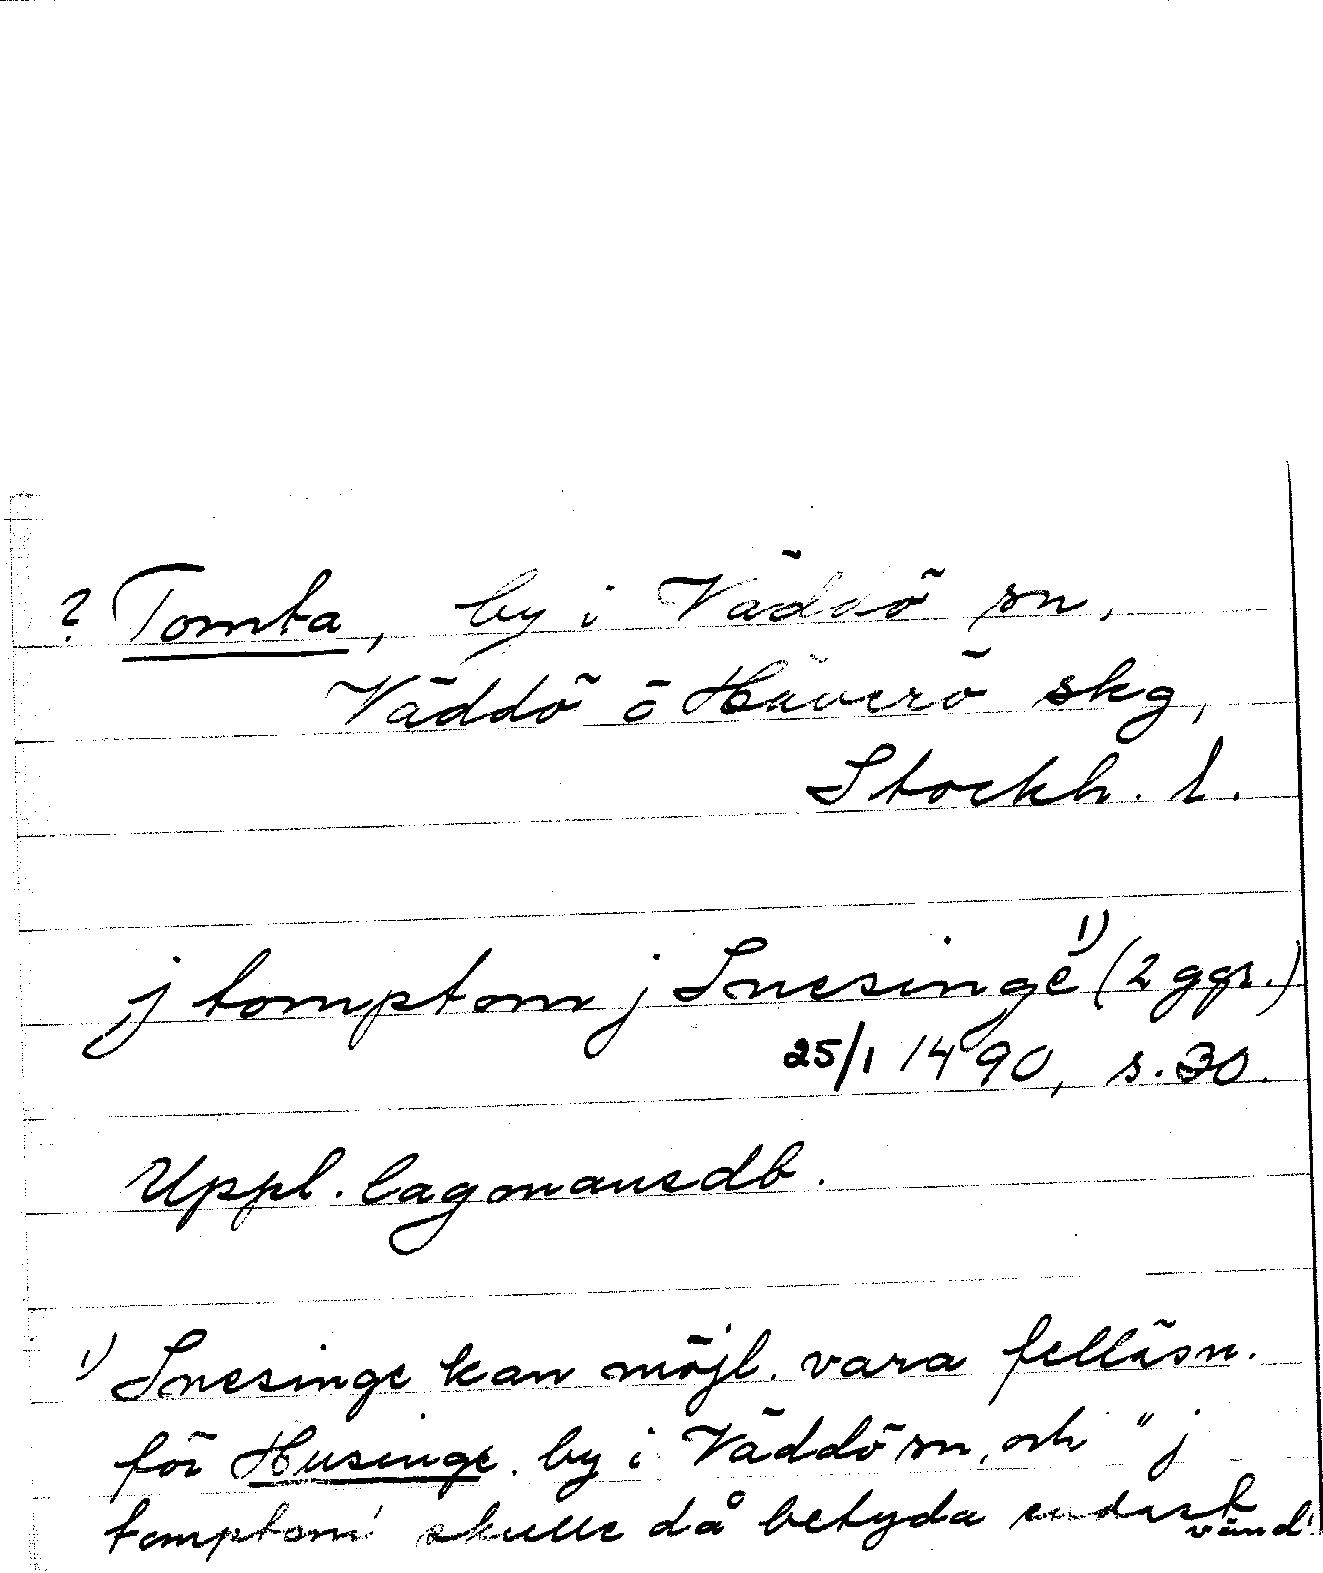 ? Tomta, by i Väddö sn,
Väddö o Häverö skg,
Stockh. l.
j tomptom j Snesinge 1) (2 ggr.)
25/1 1490, s. 30.
Uppl. lagmansdb.
1) Snesinge kan möjl. vara felläsn.
för Husinge, by i Väddö sn, och "j
tomptom" skulle då betyda endast
vänd!